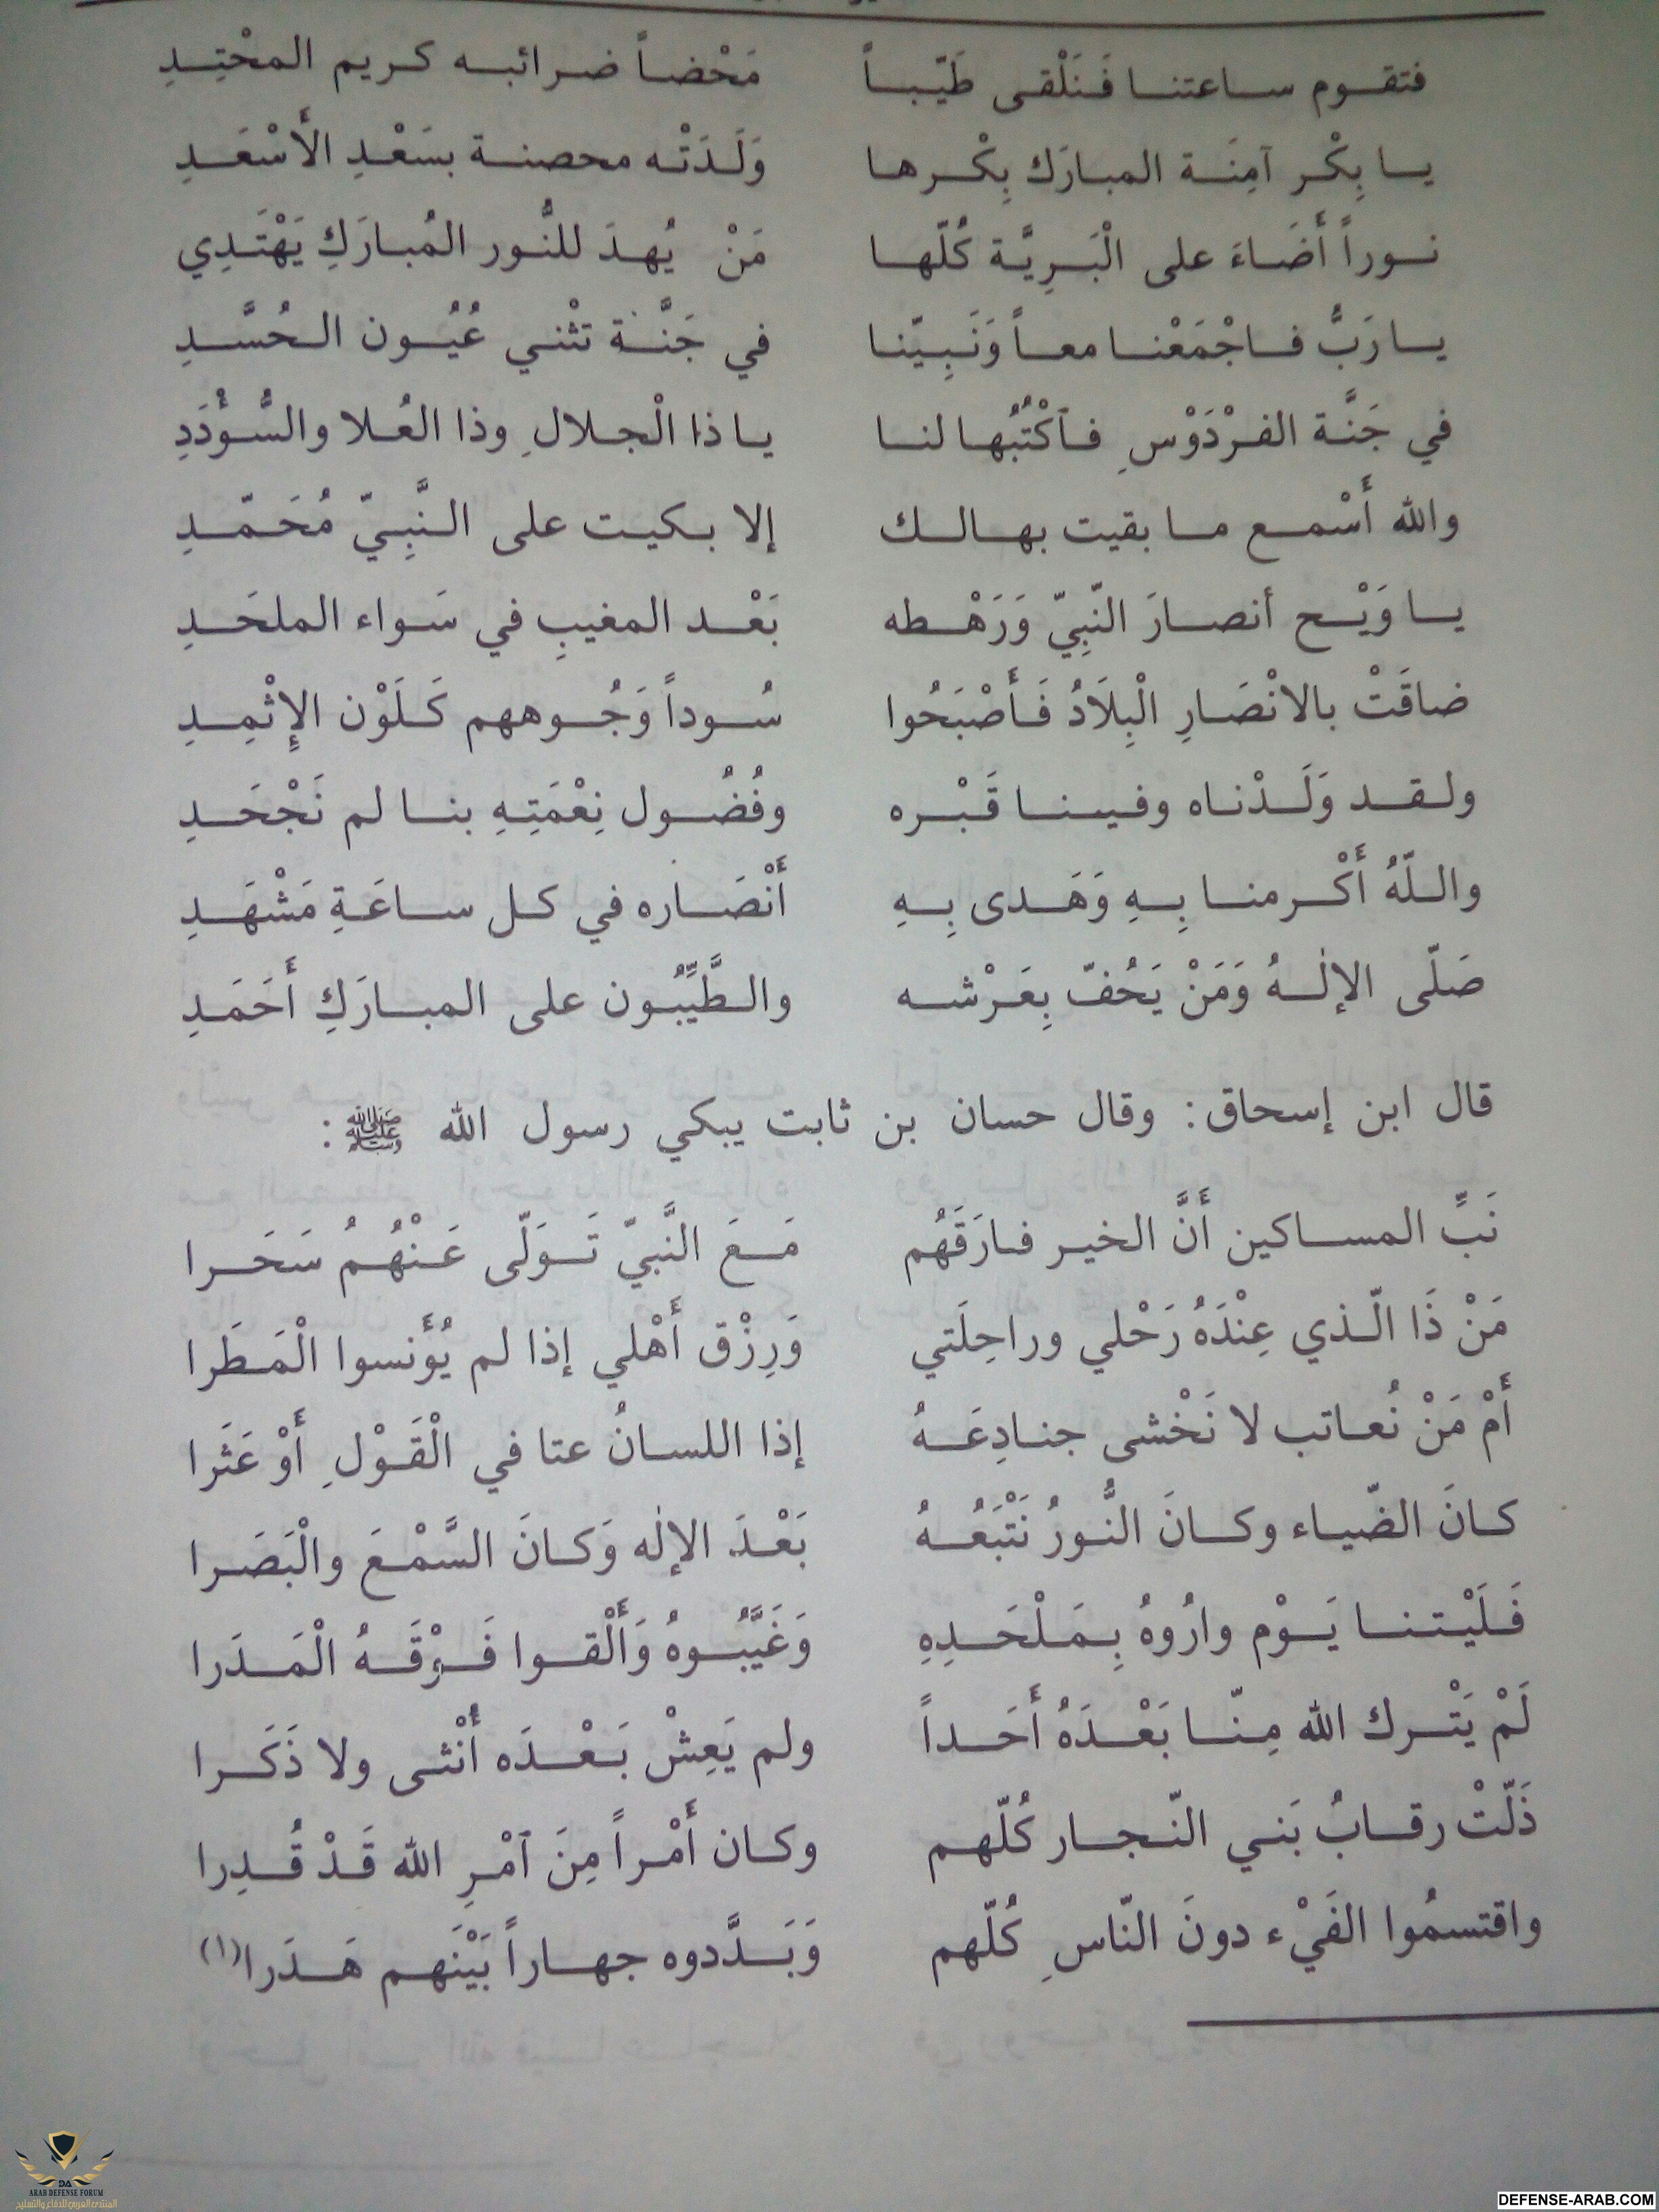 فتقوم ساعتنا فَنَلْقى طَيّباً مَحْضاً ضرائبه كريم المحْتِدِ
يا بِكْر آمِنَة المبارَك بِكْرها وَلَدَتْه محصنة بسَعْدِ الأَسْعَدِ
نوراً أَضَاءَ على الْبَرِيَّة كُلّها مَنْ يُهدَ للنُّور المُبارَكِ يَهْتَدِي
يا رَبُّ فاجْمَعْنا معاً وَنَبِيّنا في جَنَّة تثْني عُيُون الحُسَّدِ
في جَنَّة الفرْدَوْسِ فاَكْتُبْها لنا يا ذا الْجلالِ وذا العُلا والسُّؤْدَدِ
والله أَسْمع ما بقيت بهالك إلا بكيت على النَّبِيّ مُحَمّدِ
يا وَيْح أنصارَ النّبِيّ وَرَهْطه بَعْد المغيبِ في سَواء الملحَدِ
ضاقَتْ بالانْصَارِ الْبِلَادُ فَأَصْبَحُوا سُوداً وَجُوههم كَلَوْن الإِثْمِدِ
ولقد وَلَدْناه وفينا قَبْره وفُضُول نِعْمَتِهِ بنا لم نَجْحَدِ
واللّهُ أَكْرمنا بِهِ وَهَدى بِهِ أَنْصَاره في كل ساعَةِ مَشْهَدِ
صَلّى الإلٰهُ وَمَنْ يَحُفّ بِعَرْشه والطَّيِّبُون على المبارَكِ أَحَمَدِ
قال ابن إسحاق: وقال حسان بن ثابت يبكي رسول الله ﷺ:
نَبِّ المساكين أَنَّ الخير فارَقَهُم مَعَ النَّبيّ تَوَلّى عَنْهُمُ سَحَرا
مَنْ ذَا الّذي عِنْدَهُ رَحْلي وراحِلَتي وَرِزْق أَهْلي إذا لم يُؤَنسوا الْمَطَرا
أَمْ مَنْ نُعاتب لا نَخْشى جنادِعَهُ إذا اللسانُ عتا في الْقَوْلِ أَوْ عَثَرا
كانَ الضّياء وكانَ النُّورُ نَتْبَعُهُ بَعْدَ الإلٰه وَكانَ السَّمْعَ والْبَصَرا
فَلَيْتنا يَوْم وارُوهُ بِمَلْحَدِهِ وَغَيَّبُوهُ وَأَلْقوا فَوْقَهُ الْمَدَرا
لَمْ يَتْرك الله مِنّا بَعْدَهُ أَحَداً ولم يَعِشْ بَعْدَه أُنْثى ولا ذَكَرا
ذَلّتْ رقابُ بَني النّجار كُلّهم وكان أَمْراً مِنَ اَمْرِ الله قَدْ قُدِرا
واقتسمُوا الفَيْء دونَ النّاسِ كُلّهم وَبَدَّدوه جهاراً بَيْنَهم هَدَرا(١)
DA
ARAB DEFENSE FORUM
المنتدى العربي للدفاع والتسليح
DEFENSE-ARAB.COM